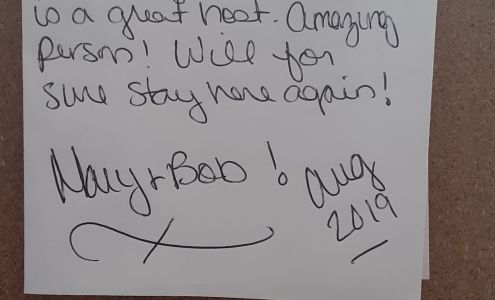 is a great host. Amazing
Person! Will for
sure stay here again!
Mary + Bob! Aug
2019